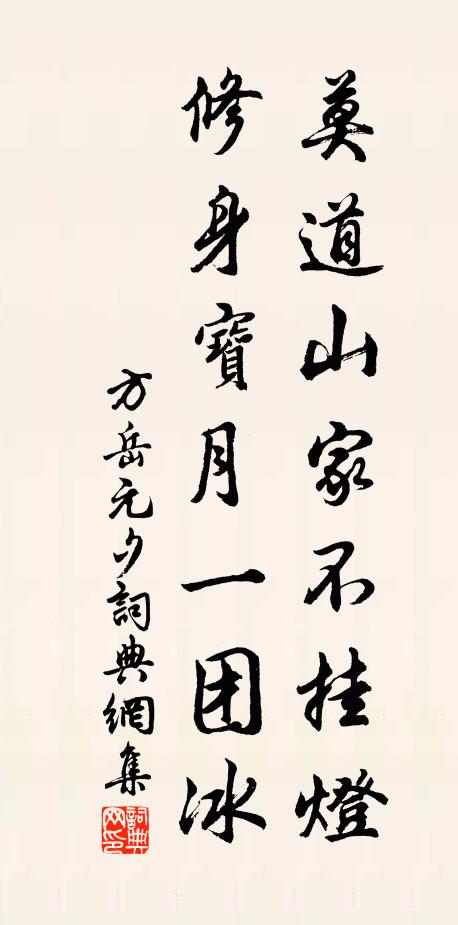 莫道山家不挂燈
修身寶月一团冰
方岳元夕詞典網集
詞典网印